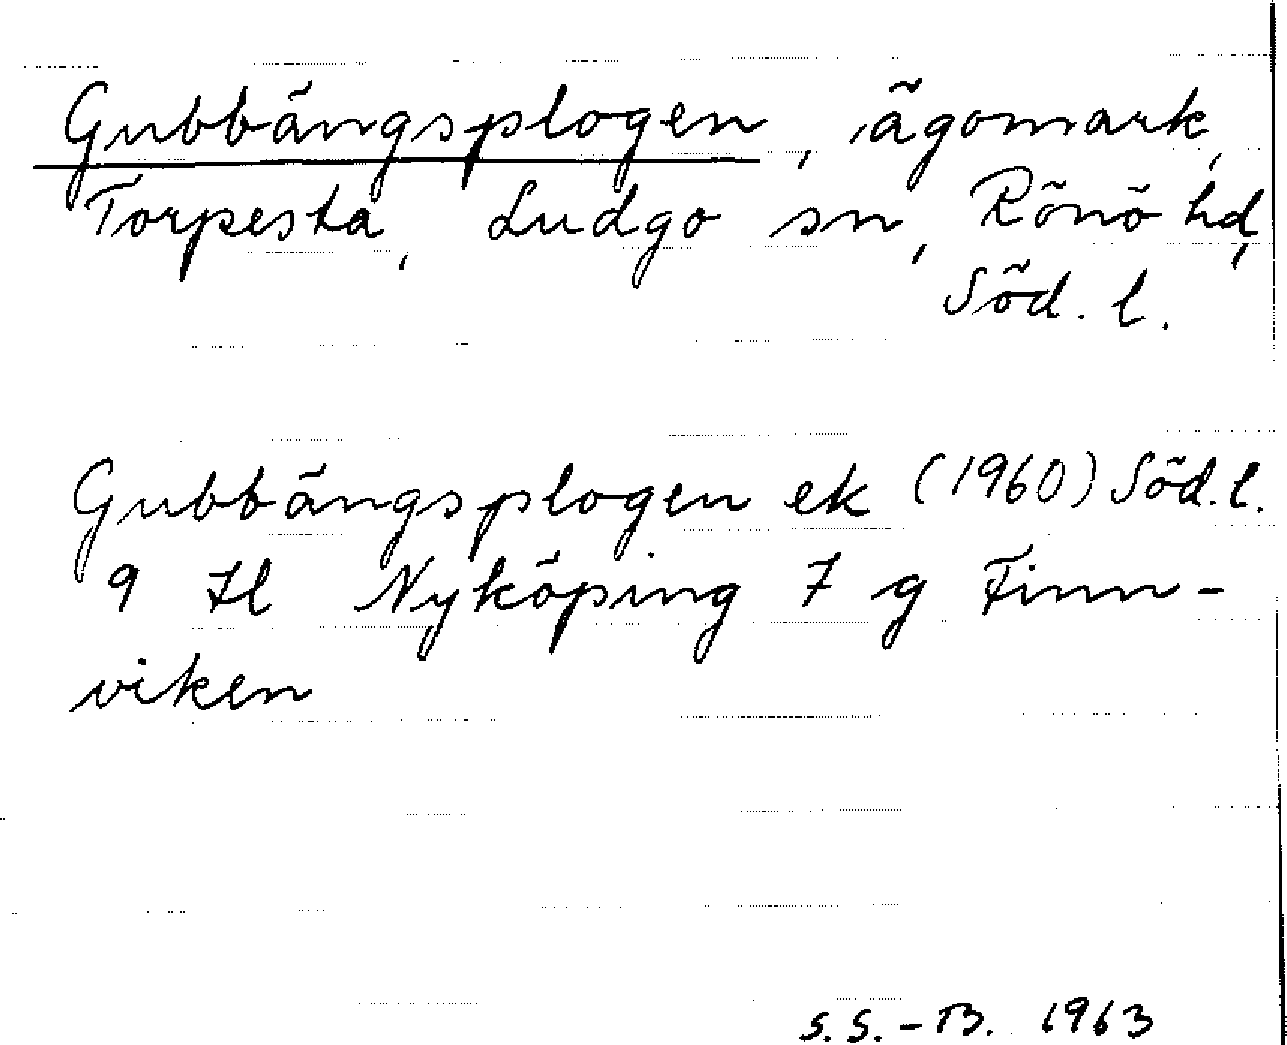 Gubbängsplogen, ägomark,
Torpesta, Ludgo sn, Rönö hd,
Söd. l.
Gubbängsplogen ek (1960) Söd. l.
9 Il Nyköping 7 g Finn-
viken
S.S.-B. 1963